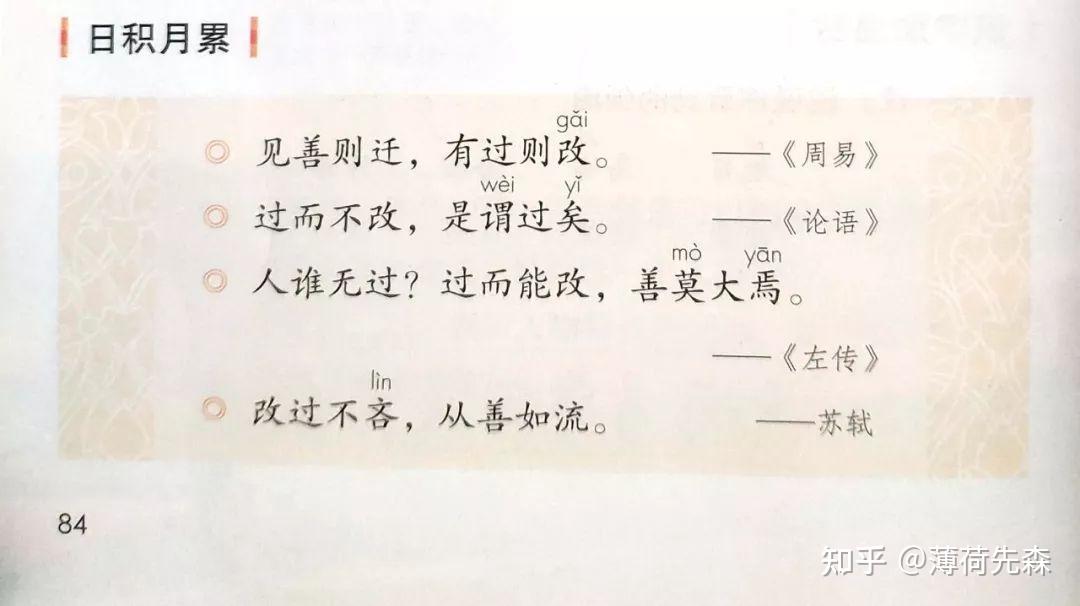 日积月累
gǎi
见善则迁，有过则改。 ——《周易》
wèi yǐ
过而不改，是谓过矣。 ——《论语》
mò yān
人谁无过？过而能改，善莫大焉。
——《左传》
lìn
改过不吝，从善如流。 ——苏轼
84
知乎 @薄荷先森